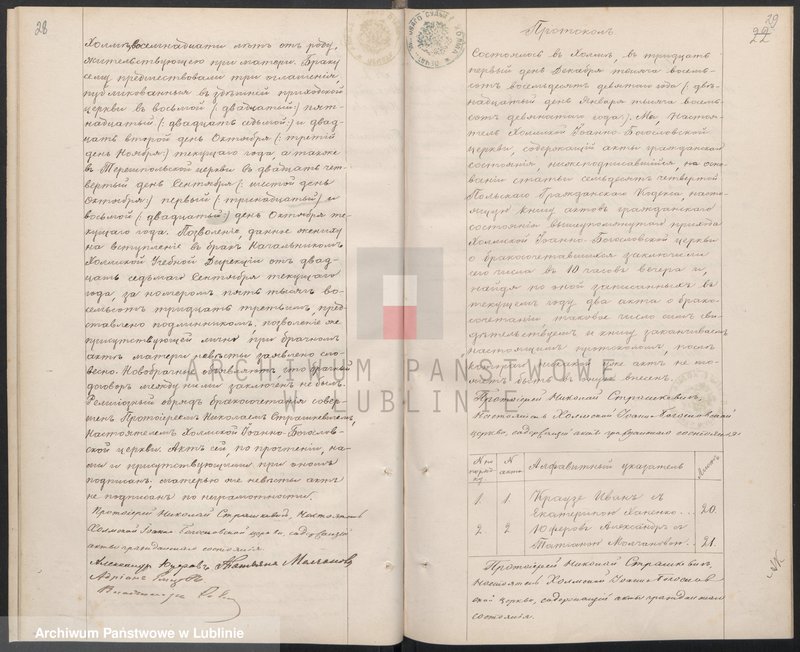 28
Холмѣ, восемнадцати лѣтъ отъ роду,
жительствующею при матери. Браку
сему предшествовали три оглашенія,
публикованныя въ здѣшней приходской
церкви въ восьмой (: двадцатый:) пят-
надцатый (: двадцать седьмой:) и двад-
цать второй день Октября (: третій
день Ноября:) текущаго года, а также
въ Тереспольской церкви въ двадцать чет-
вертый день Сентября (: шестой день
Октября:) первый (: тринадцатый:) и
восьмой (: двадцатый:) день Октября те-
кущаго года. Позволеніе, данное жениху
на вступленіе въ бракъ Начальникомъ
Холмской Учебной Дирекціи отъ двад-
цать седьмаго Сентября текущаго
года, за номеромъ пять тысячъ во-
семьсотъ тридцать третьимъ, пред-
ставлено подлинникомъ, позволеніе же
присутствующей лично при брачномъ
актѣ матери невѣсты заявлено сло-
весно. Новобрачные объявляютъ, что брачный
договоръ между ними заключенъ не былъ.
Религіозный обрядъ бракосочетанія совер-
шенъ Протоіереемъ Николаемъ Страшкевичемъ,
Настоятелемъ Холмской Іоанно-Богослов-
ской церкви. Актъ сей, по прочтеніи, на-
ми и присутствующими при ономъ
подписанъ, матерью же невѣсты актъ
не подписанъ по неграмотности.
Протоіерей Николай Страшкевичъ, Настоятель
Холмской Іоанно-Богословской церкви, содержащій
акты гражданскаго состоянія.
Александръ Юферовъ Татьяна Молчанова
Адріанъ
29
22
Протоколъ.
Состоялось въ Холмѣ, въ тридцать
первый день Декабря тысяча восемь-
сотъ восемьдесятъ девятаго года (: двѣ-
надцатый день Января тысяча восемь-
сотъ девяностаго года:). Мы, Настоя-
тель Холмской Іоанно-Богословской
церкви, содержащій акты гражданскаго
состоянія, нижеподписавшійся, на осно-
ваніи статьи семьдесятъ четвертой
Польскаго Гражданскаго Кодекса, насто-
ящую книгу актовъ гражданскаго
состоянія вышеупомянутаго прихода
Холмской Іоанно-Богословской церкви
о бракосочетавшихся заключили
сего числа въ 10 часовъ вечера и,
найдя по оной записанныхъ въ
текущемъ году два акта о брако-
сочетаніи, таковое число симъ сви-
дѣтельствуемъ и книгу заканчиваемъ
настоящимъ протоколомъ, послѣ
котораго никакой уже актъ не мо-
жетъ быть въ оную внесенъ.
Протоіерей Николай Страшкевичъ,
Настоятель Холмской Іоанно-Богословской
церкви, содержащій акты гражданскаго состоянія.
№ по порядку № акта Алфавитный указатель Листъ
1 1 Краузе Иванъ съ
Екатериною ... 20.
2 2 Юферовъ Александръ съ
Татіаною Молчановою.. 21.
Протоіерей Николай Страшкевичъ,
Настоятель Холмской Іоанно-Богослов-
ской церкви, содержащій акты гражданскаго
состоянія.
ARCHIWUM PAŃSTWOWE
W LUBLINIE
Archiwum Państwowe w Lublinie